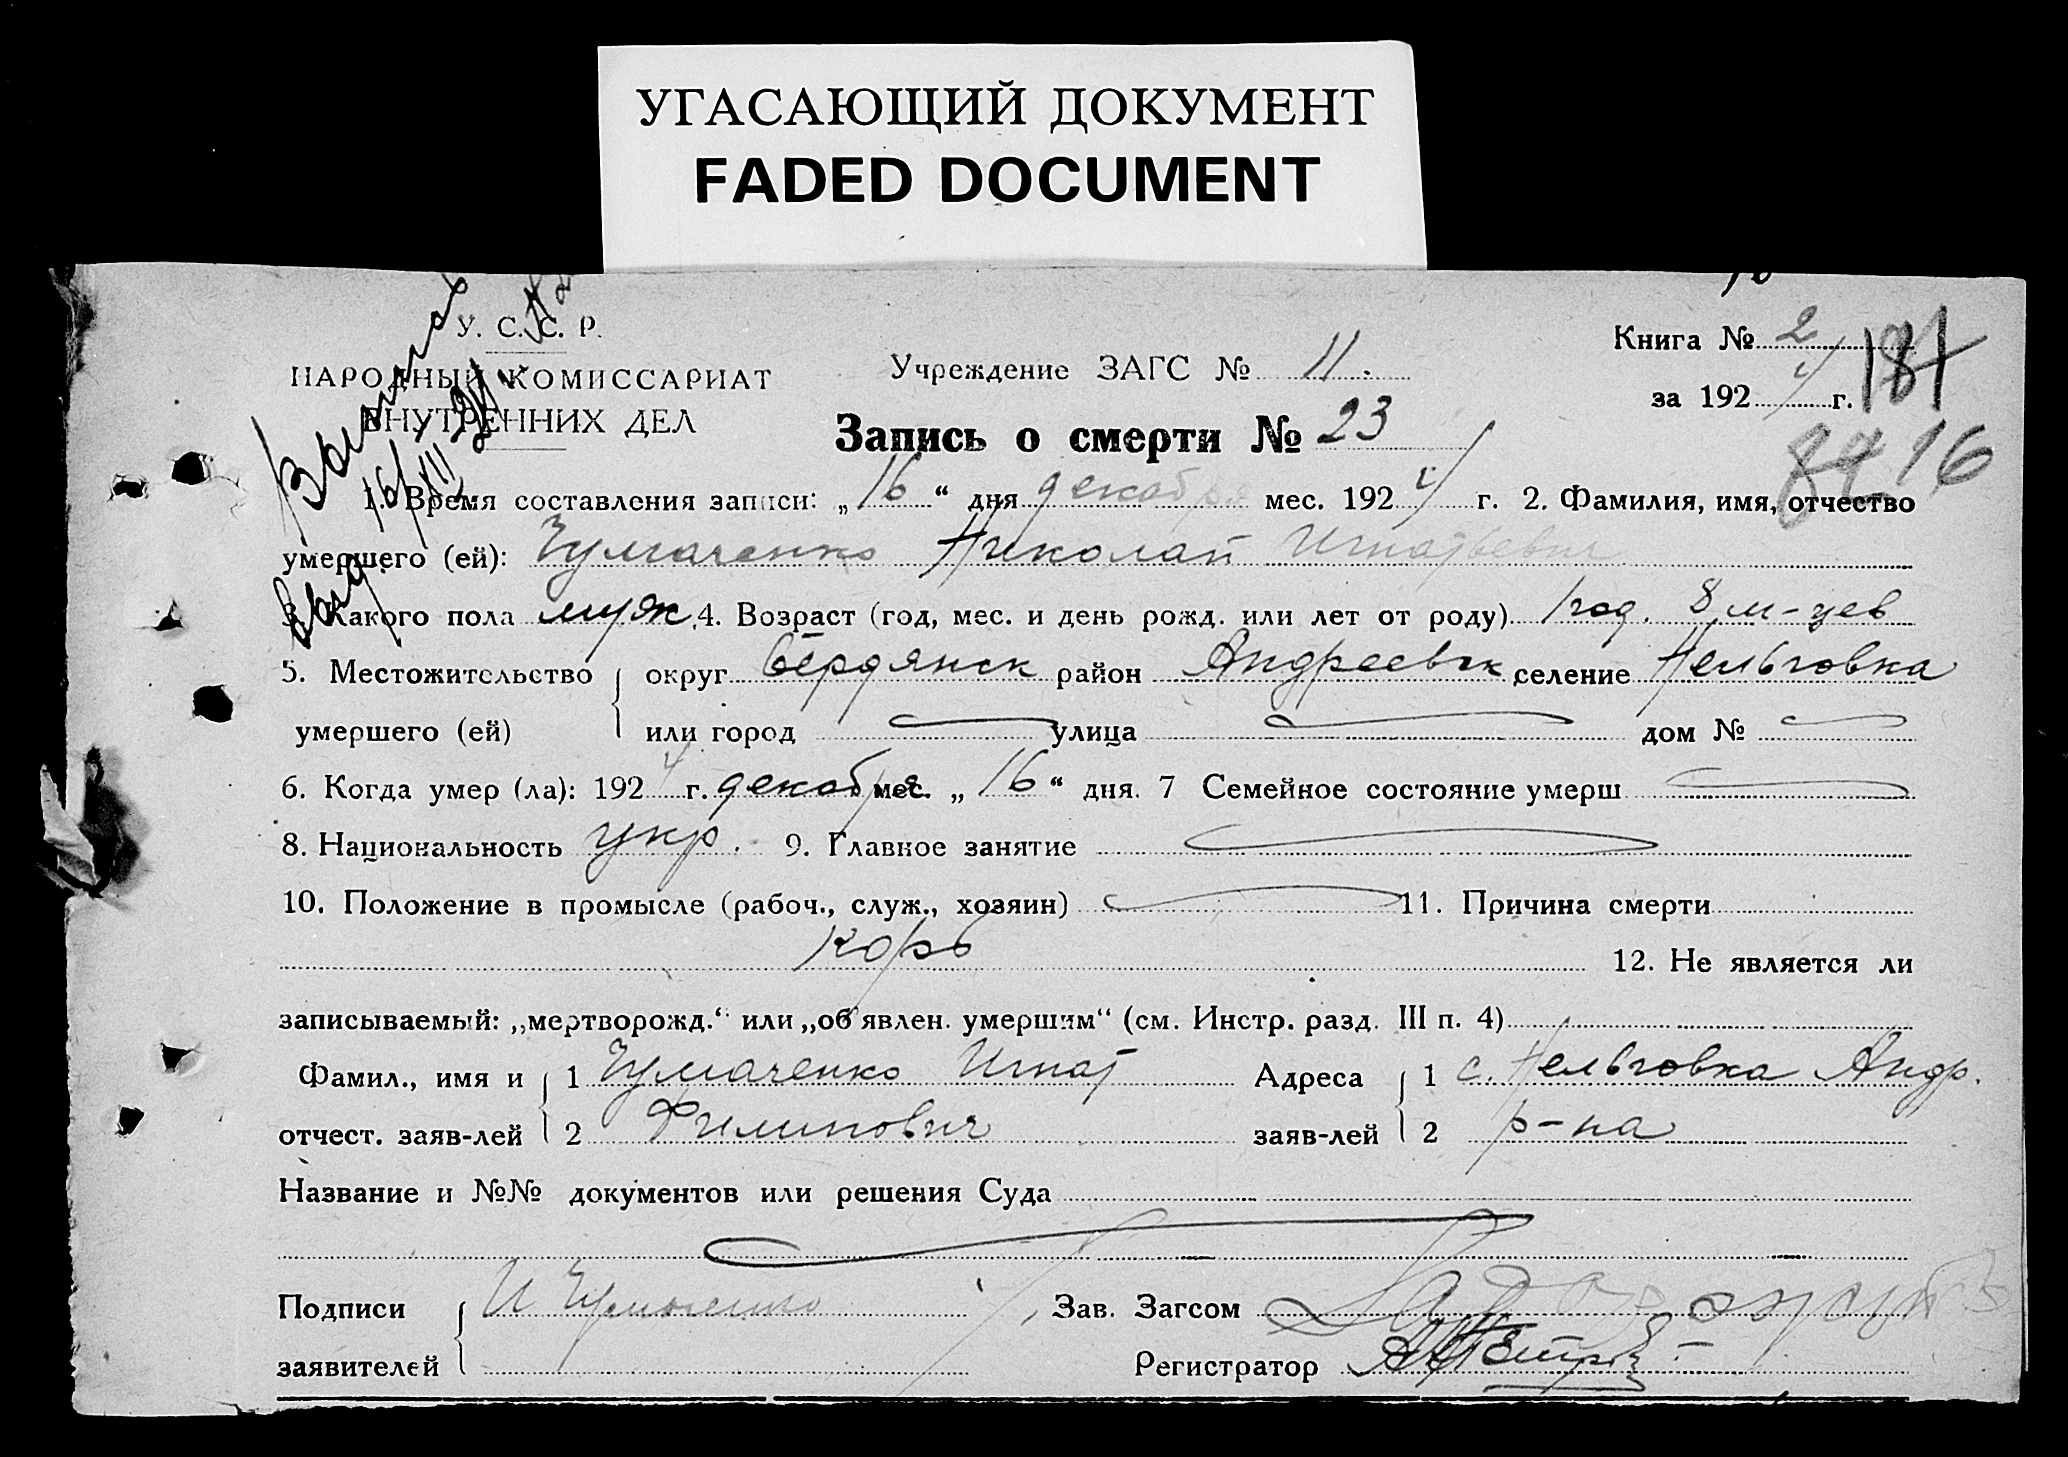 УГАСАЮЩИЙ ДОКУМЕНТ
FADED DOCUMENT
У. С. С. Р.
НАРОДНЫЙ КОМИССАРИАТ
ВНУТРЕННИХ ДЕЛ
Учреждение ЗАГС № 11.
Книга № 2
за 1924 г.
184
Запись о смерти № 23
16
1. Время составления записи: „16“ дня декабря мес. 1924 г. 2. Фамилия, имя, отчество
умершего (ей): Чумаченко Николай Игнатьевич
3. Какого пола муж 4. Возраст (год, мес. и день рожд. или лет от роду) 1 год. 8 м-цев
5. Местожительство округ Бердянск район Андреевск селение Нельговка
умершего (ей) или город улица дом №
6. Когда умер (ла): 1924 г. декабря мес. „16“ дня. 7 Семейное состояние умерш
8. Национальность укр. 9. Главное занятие
10. Положение в промысле (рабоч., служ., хозяин) 11. Причина смерти
корь 12. Не является ли
записываемый: „мертворожд.“ или „об'явлен. умершим“ (см. Инстр. разд. III п. 4)
Фамил., имя и 1 Чумаченко Игнат Адреса 1 с. Нельговка Андр.
отчест. заяв-лей 2 Филипович заяв-лей 2 р-на
Название и №№ документов или решения Суда
Подписи И Чумаченко Зав. Загсом
заявителей Регистратор